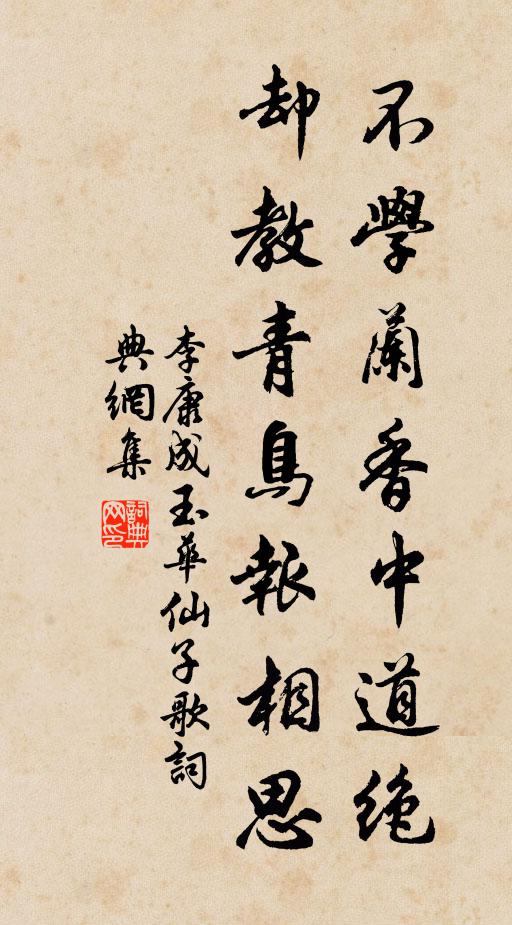 不學蘭香中道絶
却教青鳥報相思
李康成玉華仙子歌詞
典網集
詞典網印